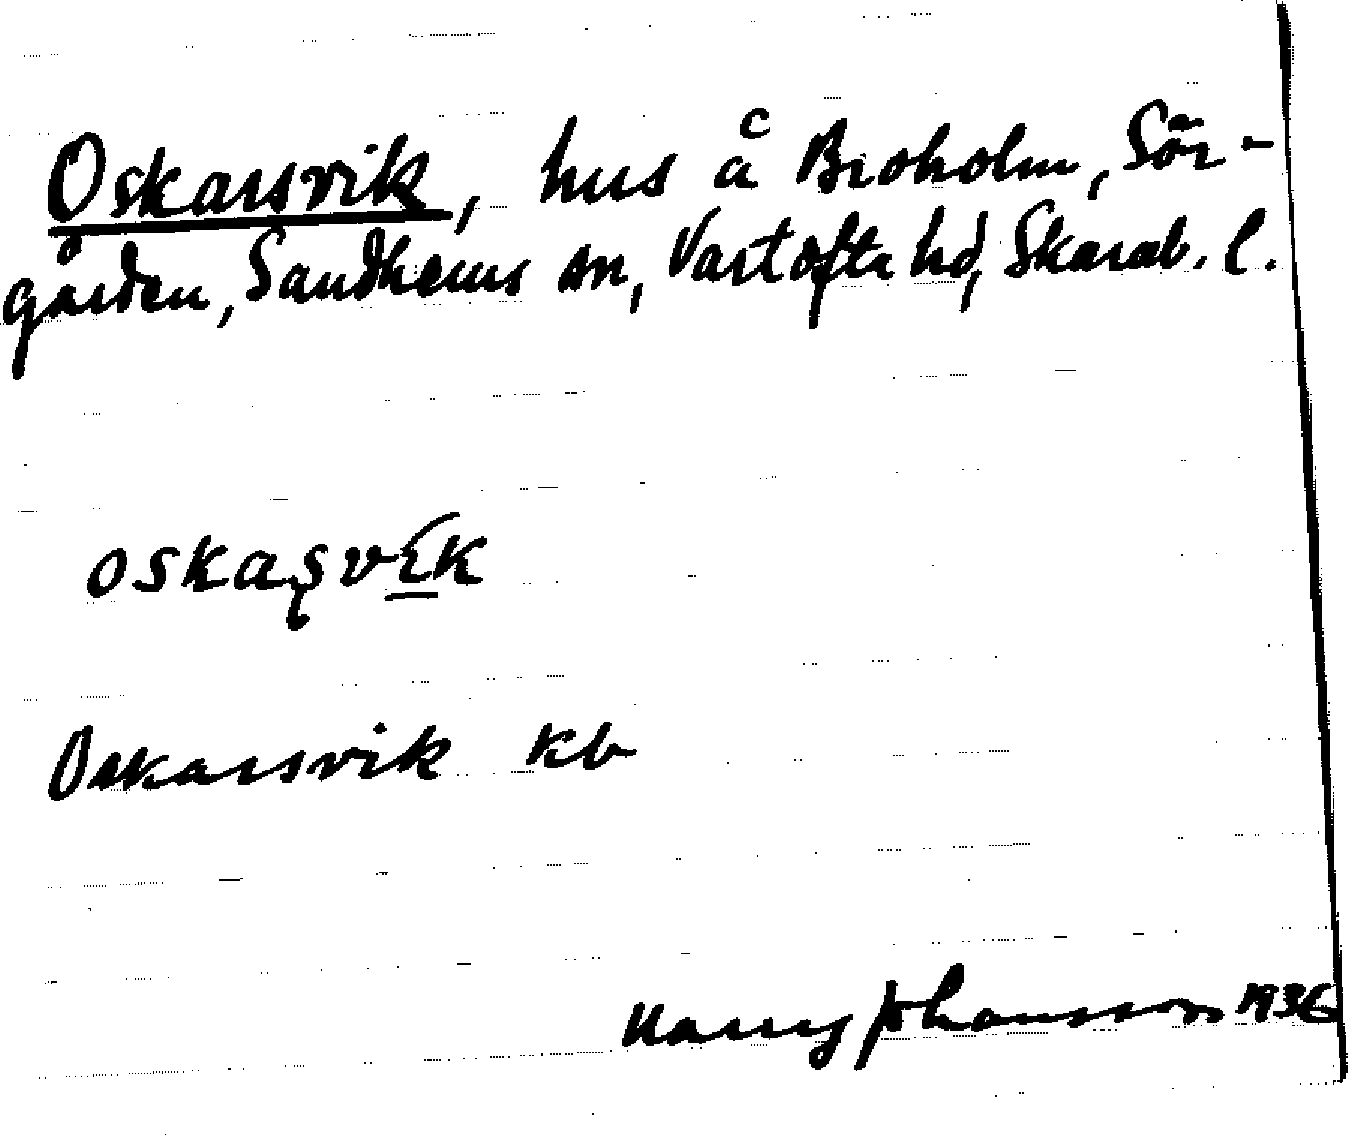 Oskarsvik, hus å Broholm, Sör-
gården, Sandhems sn, Vartofta hd, Skarab. l.
oskaʂvik
Oskarsvik kb
Harry Johansson 1936